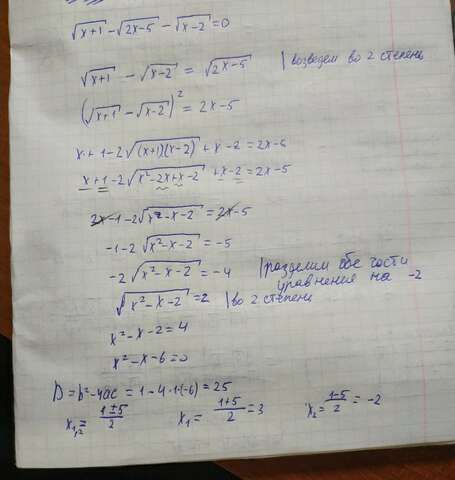 √(x+1) - √(2x-5) - √(x-2) = 0
√(x+1) - √(x-2) = √(2x-5) | возведем во 2 степень
(√(x+1) - √(x-2))² = 2x-5
x+1-2√((x+1)(x-2)) + x-2 = 2x-5
x+1-2√(x²-2x+x-2) + x-2 = 2x-5
2x-1-2√(x²-x-2) = 2x-5
-1-2√(x²-x-2) = -5
-2√(x²-x-2) = -4 | разделим обе части уравнения на -2
√(x²-x-2) = 2 | во 2 степени
x²-x-2 = 4
x²-x-6=0
D = b²-4ac = 1-4·1·(-6) = 25
x₁,₂ = (1±5)/2 x₁ = (1+5)/2 = 3 x₂ = (1-5)/2 = -2